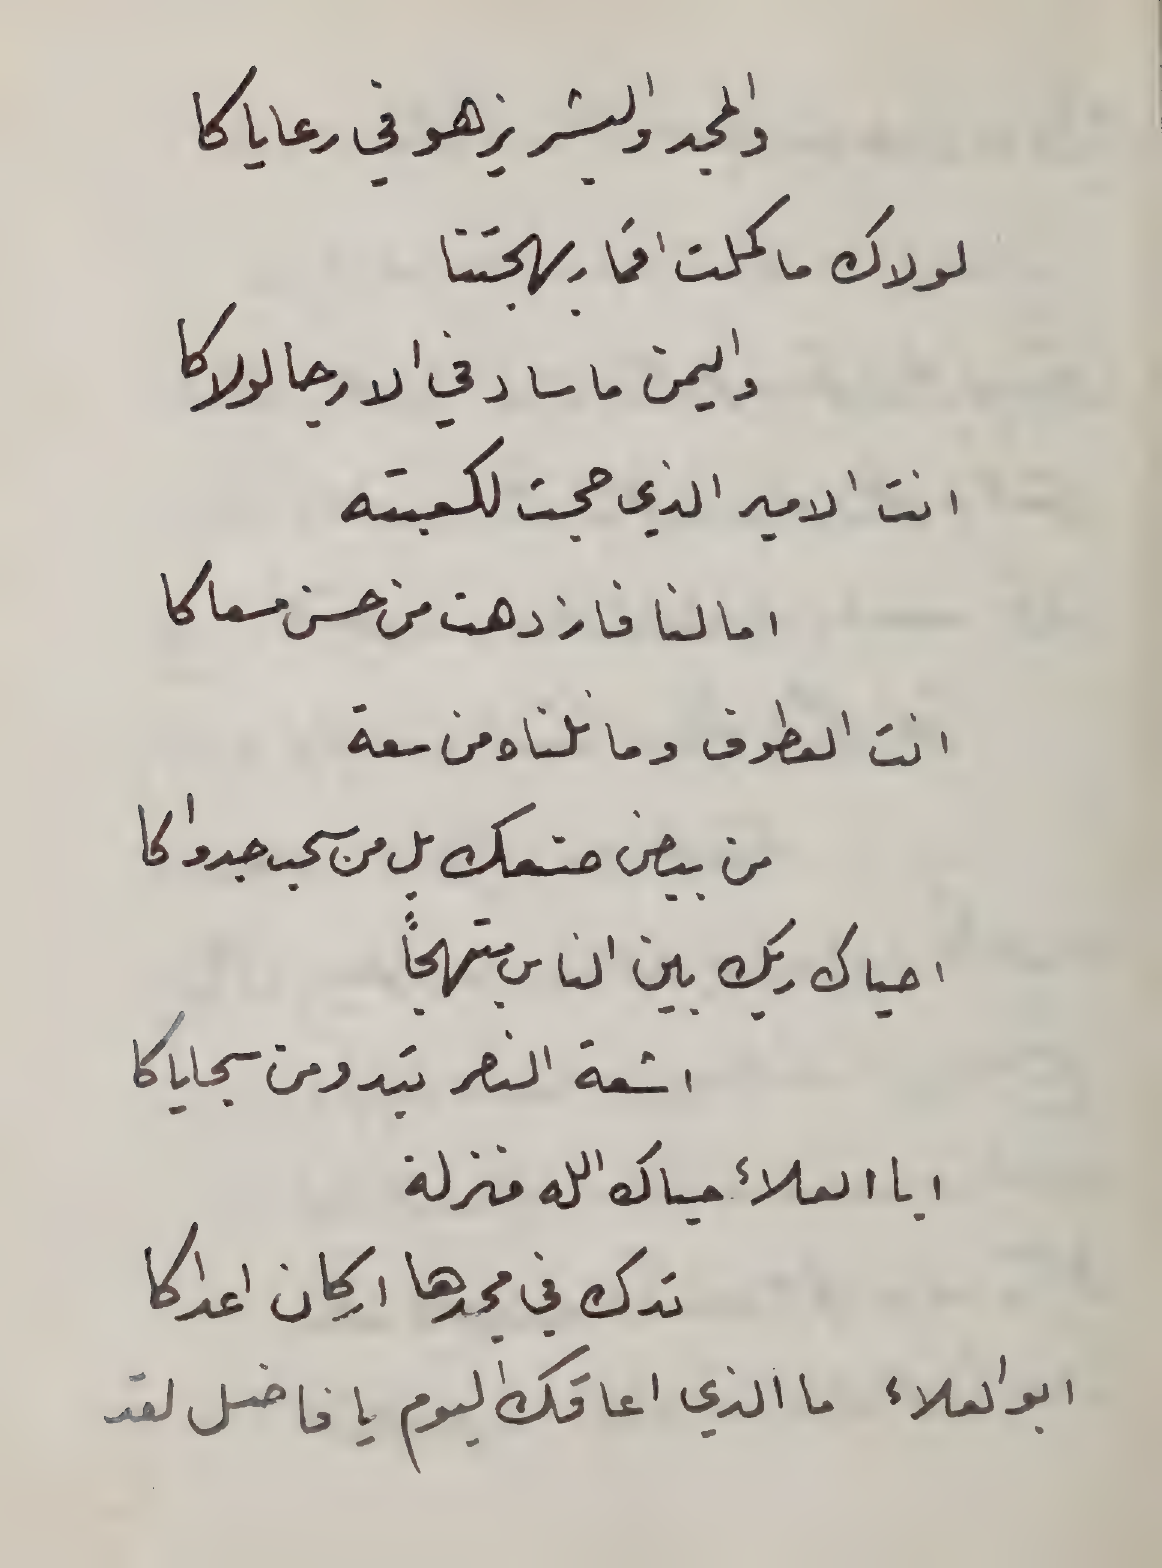 والمجد والبشر يزهو في رعاياكا
لولاك ما كملت افمار بهجتنا
واليمن ما ساد في الارجا لولاكا
انت الامير الذي حجت لكعبته
امالنا فازدهت من حسن مسعاكا
انت العطوف وما نلناه من سعة
من بيض صنعك بل من سحب جدواكا
احياك ربك بين الناس مبتهجاً
اشعة النصر تبدو من سجاياكا
ابا العلاء حياك الله منزلة
تدك في مجدها اركان اعداكا
ابو العلاء ما الذي اعاقك اليوم يا فاضل لقد